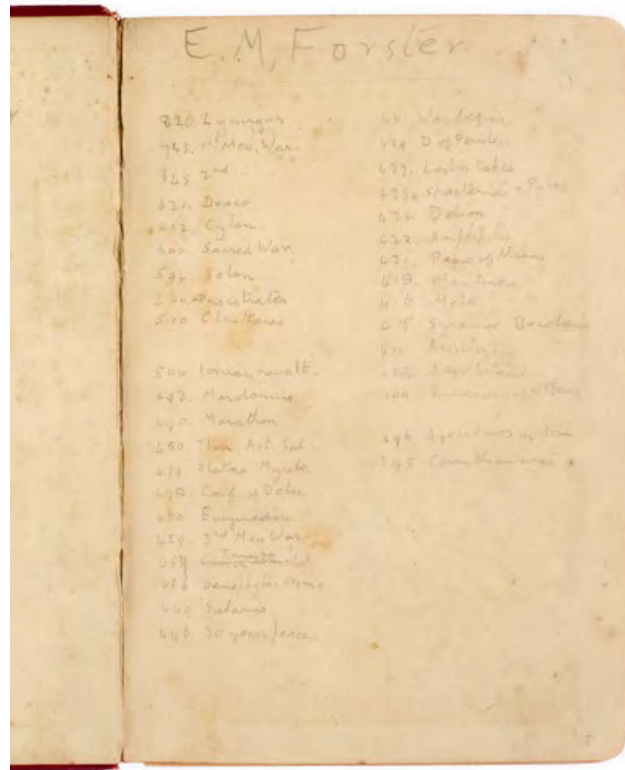 E. M. Forster
820. Lycurgus
745. 1st Mess. War.
645 2nd
621. Draco
612. Cylon.
600. Sacred War.
594. Solon
560 Pisistratus
510 Cleisthenes
500 Ionian revolt.
492. Mardonius
490. Marathon
480 Ther. Art. Sal.
479 Platea Mycale
478. Conf. of Delos
Eurymedon
459. 3rd Mess War
Tanagra
449 Salamis
446 30 years peace
War begins
429 D of Pericles
427. Lesbos taken
425. Sphacteria - Pylos
424 Delion
422. Amphipolis
421 Peace of Nicias
418. Mantinea
416 Melos
415 Syracuse
396 Agesilaus
395 Corinthian war